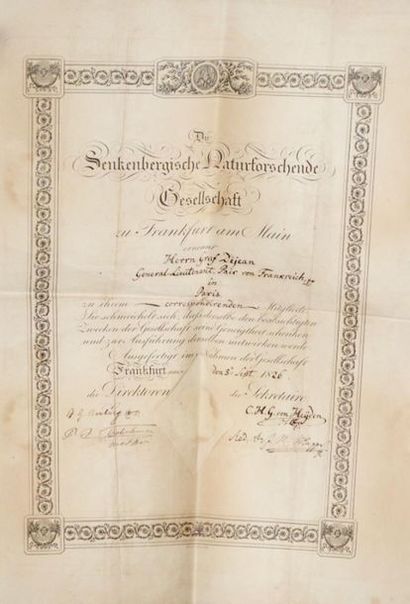 Die
Senkenbergische Naturforschende
Gesellschaft
zu Frankfurt am Main
ernennt
Herrn Graf Dejean
General-Lieutenant, Pair von Frankreich
in
Paris
zu ihrem correspondirenden Mitgliede.
Sie schmeichelt sich, daß derselbe den beabsichtigten
Zwecken der Gesellschaft seine Geneigtheit schenken
und zur Ausführung derselben mitwirken werde
Ausgefertigt im Nahmen der Gesellschaft
Frankfurt den 3 Sept 1826
die Direktoren die Sekretaire
C.H.G. von Heyden